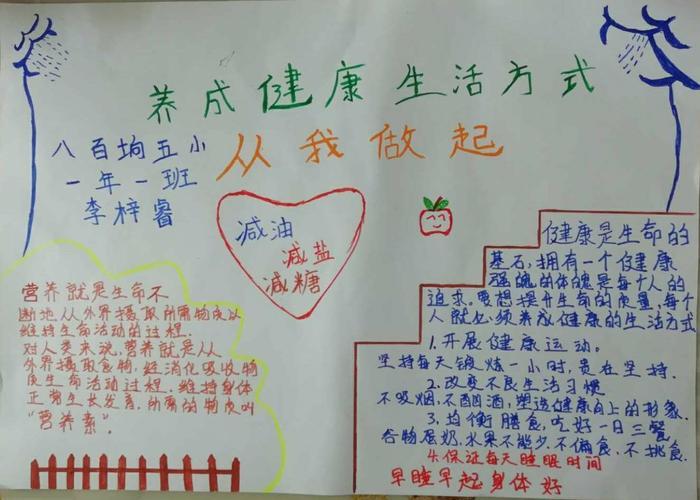 养成健康生活方式
从我做起
八百垧五小
一年一班
李梓睿
减油
减盐
减糖
营养就是生命不
断地从外界摄取所需物质以
维持生命活动的过程.
对人类来说,营养就是从
外界摄取食物,经消化吸收物
质生命活动过程.维持身体
正常生长发系,所需的物质叫
"营养素".
健康是生命的
基石,拥有一个健康
强魄的体魄是每个人的
追求.要想提升生命的质量,每个
人就必须养成健康的生活方式
1.开展健康运动。
坚持每天锻炼一小时,贵在坚持.
2.改变不良生活习惯
不吸烟,不酗酒,塑造健康向上的形象.
3.均衡膳食,吃好一日三餐
谷物蛋奶,水果不能少,不偏食,不挑食.
4.保证每天睡眠时间
早睡早起身体好